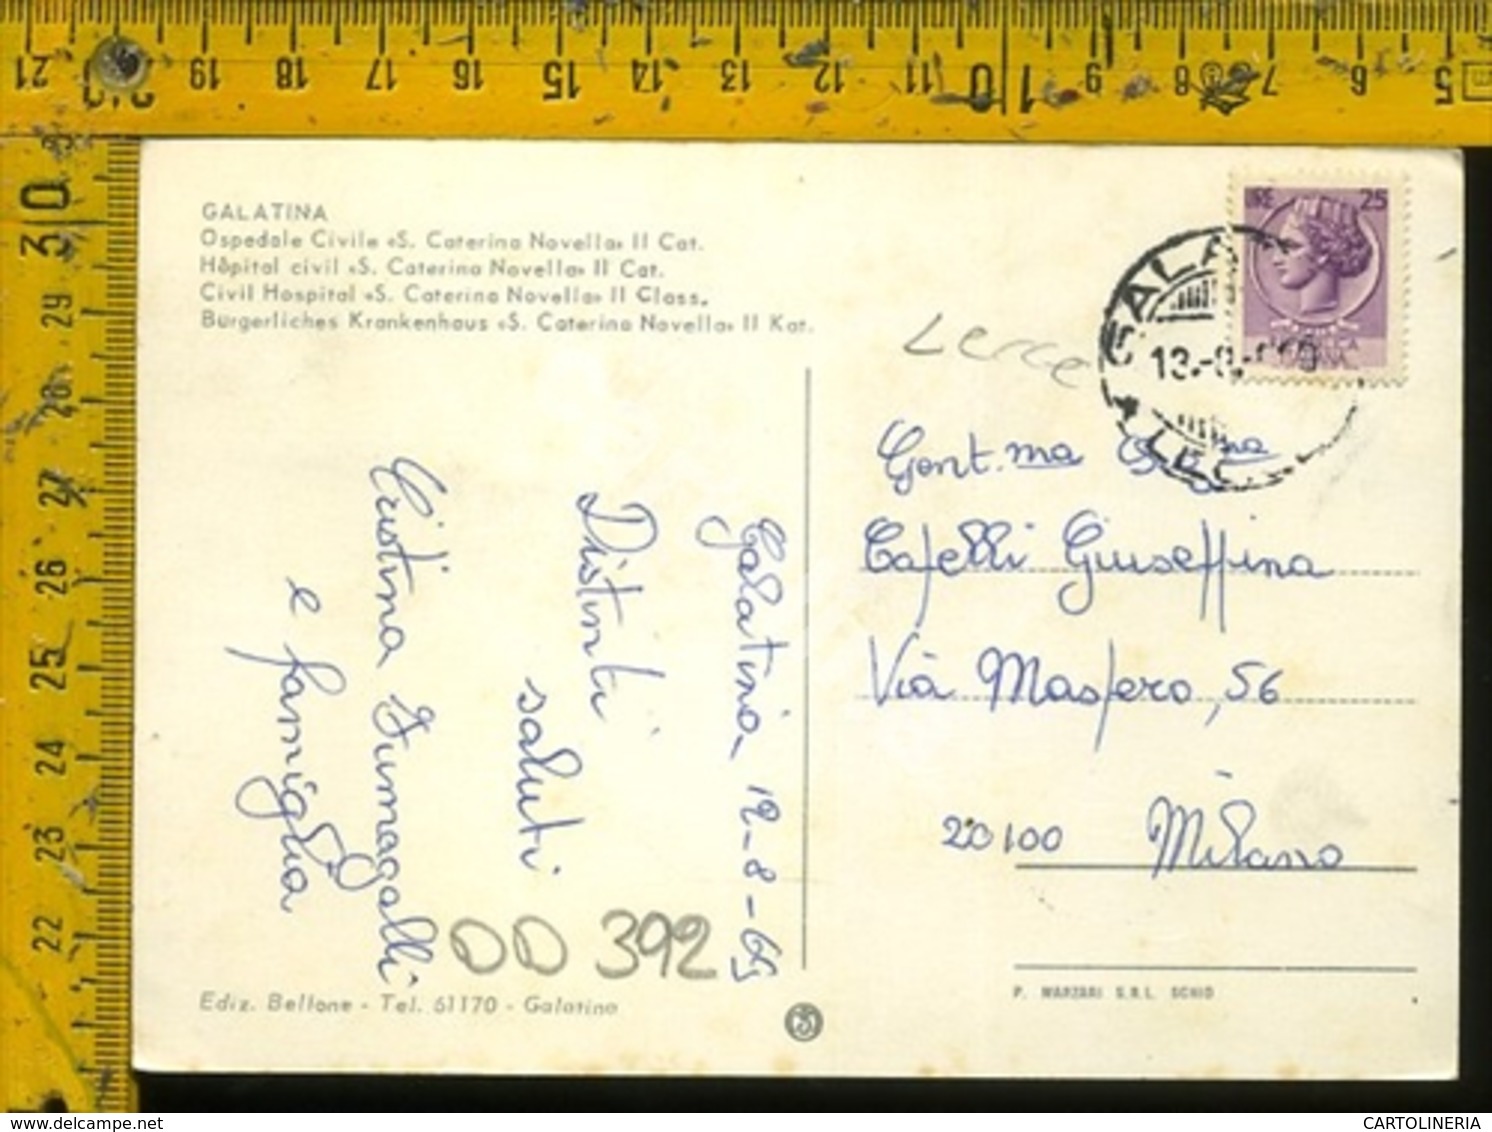 GALATINA
Ospedale Civile «S. Caterina Novella» II Cat.
Hôpital civil «S. Caterina Novella» II Cat.
Civil Hospital «S. Caterina Novella» II Class.
Burgerliches Krankenhaus «S. Caterina Novella» II Kat.
Galatina 12-8-69
Distinti
saluti
Cristina Fumagalli
e famiglia
DD 392
Ediz. Bellone - Tel. 61170 - Galatina
LIRE 25
GALA
13.-8.
LEC
Lecce
Gent.ma Sig.na
Cafelli Giuseppina
Via Maspero, 56
20100 Milano
P. MARZARI S.R.L. SCHIO
21 20 19 18 17 16 15 14 13 12 11 10 9 8 7 6 5
30
29
28
27
26
25
24
23
22
delcampe.net
CARTOLINERIA